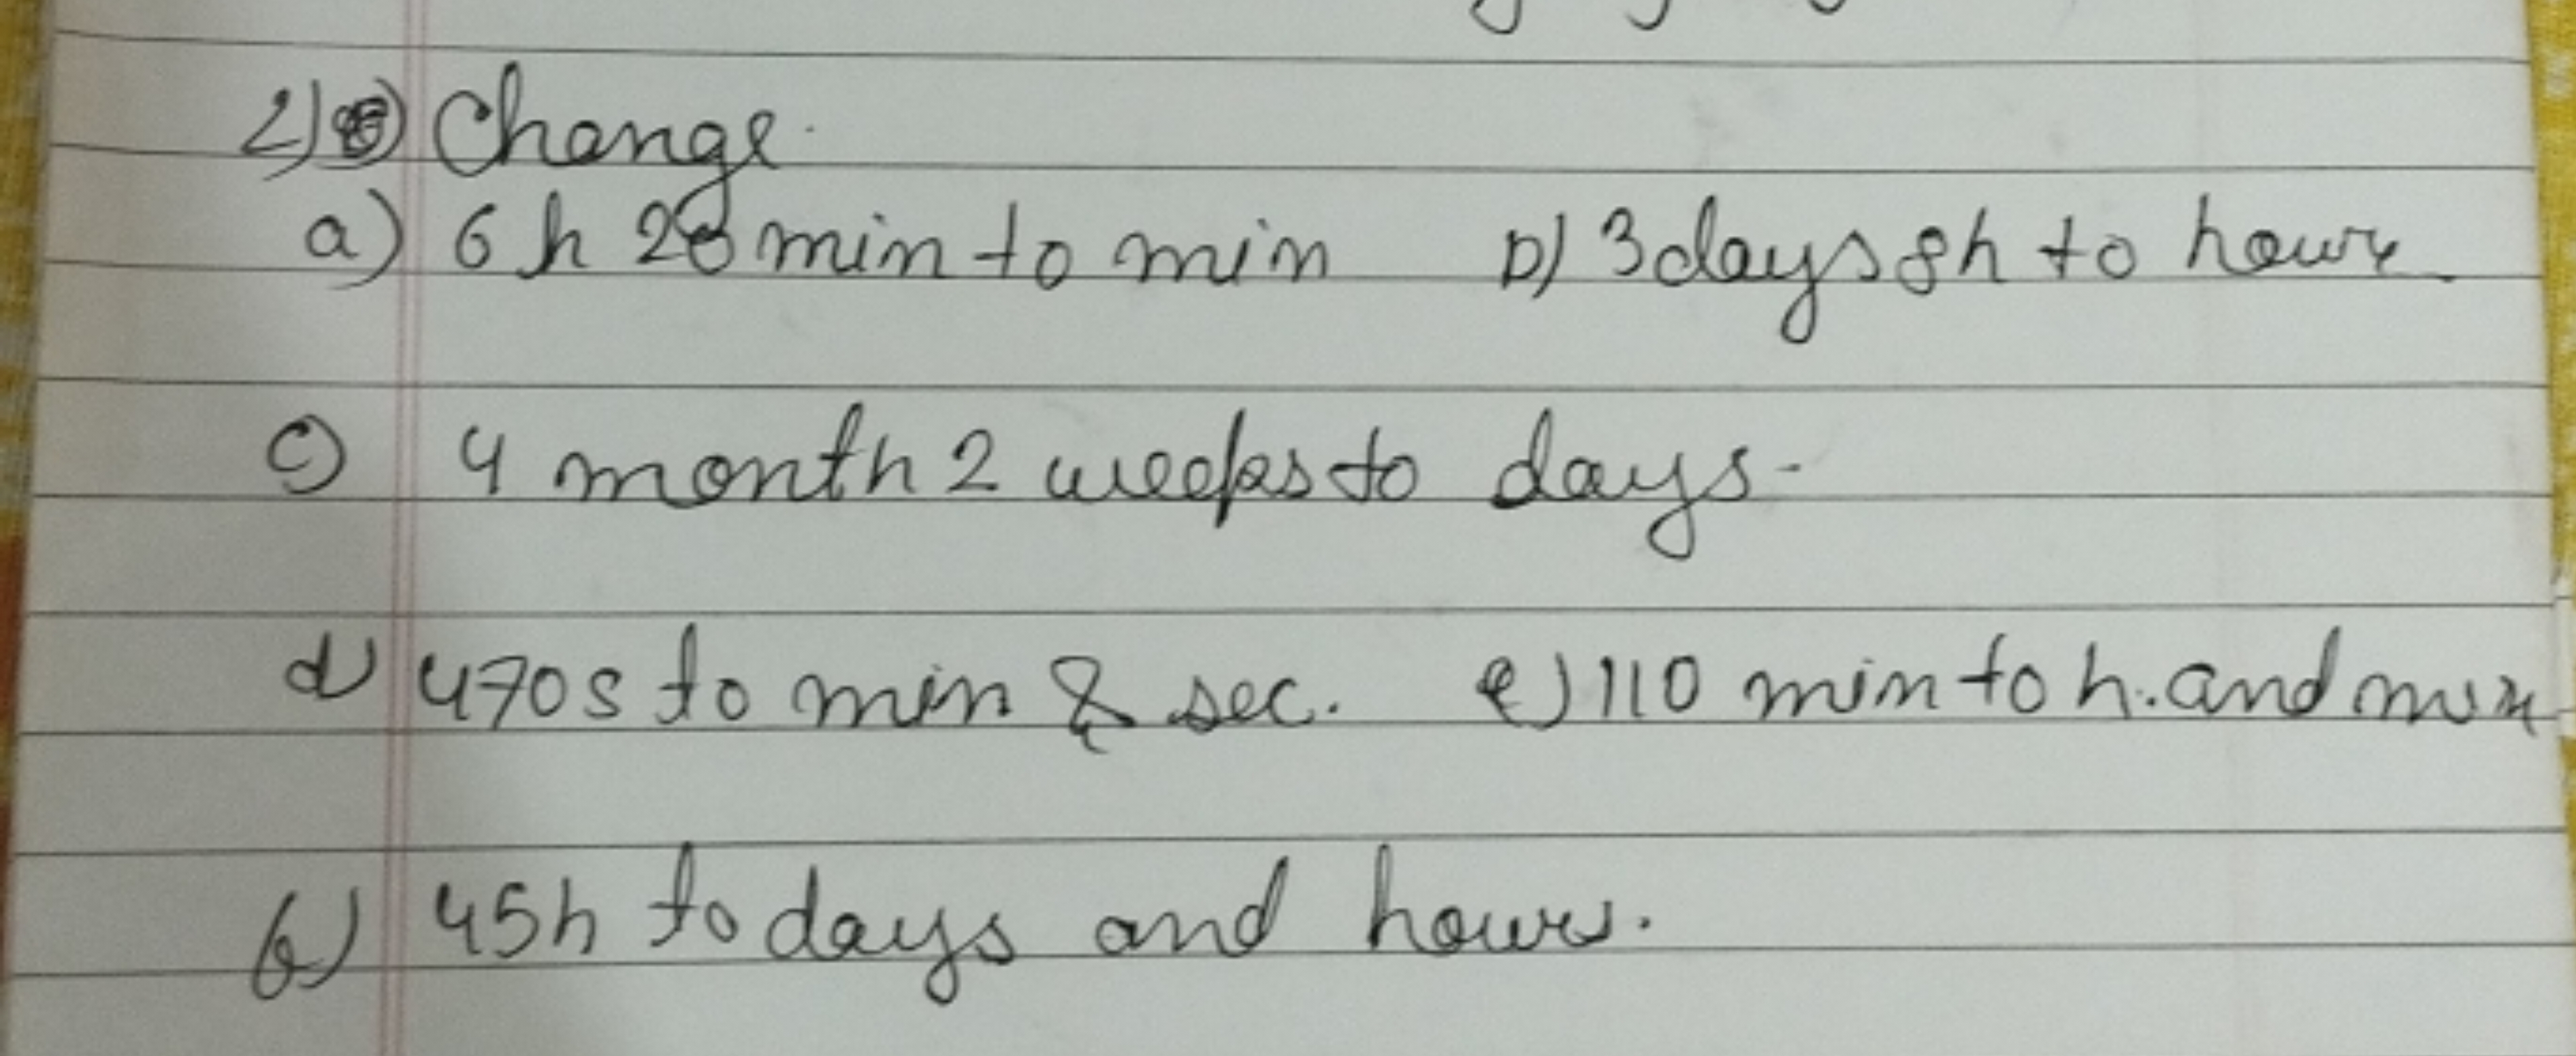 2) Change.
a) 6 h 20 min to min b) 3 days 8h to hours.
c) 4 month 2 weeks to days.
d) 470s to min & sec. e) 110 min to h. and min
f) 45h to days and hours.